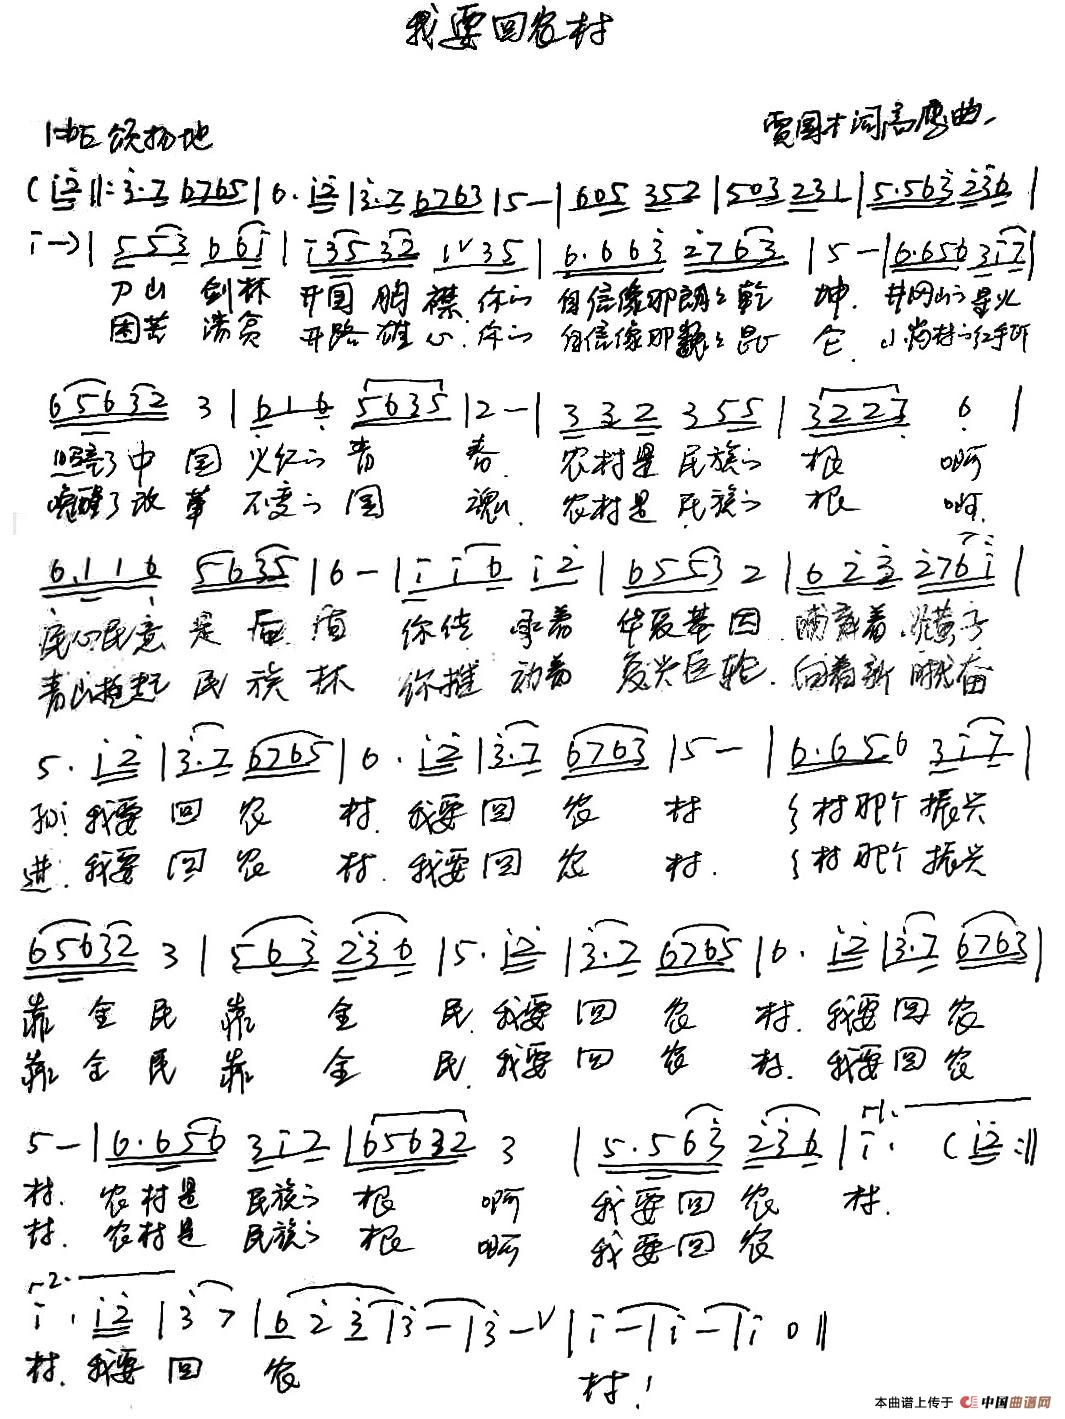 我要回农村
颂扬地
贾国才词高 曲
( i 2 ‖: 3·7 6765 | 6· i 2 | 3·7 6763 | 5 - | 605 352 | 503 231 | 5·563 236 |
i -) | 553 66i | i3532 1 V 35 | 6·663 2763 | 5 - | 6·656 3i7 |
刀山 剑林 开国 胸襟.你的 自信像那朗朗乾 坤.井冈山的星火
困苦 清贫 开路 雄心.你的 自信像那巍巍昆 仑.小岗村的红手印
65632 3 | 616 5635 | 2 - | 332 355 | 3227 6 |
照亮了中 国 火红的 青 春. 农村是 民族的 根 啊
唤醒了改 革 不变的 国 魂. 农村是 民族的 根 啊.
6·116 5635 | 6 - | i i6 i2 | 6553 2 | 623 276i |
民心民意 是 你传 承着 华夏基因 哺育着 炎黄子
青山挺起 民 族 林 你推 动着 复兴巨轮. 向着新 奋
5· i2 | 3·7 6765 | 6· i2 | 3·7 6763 | 5 - | 6·656 3i7 |
孙: 我要 回 农 村. 我要 回 农 村 乡村那个 振兴
进. 我要 回 农 村. 我要 回 农 村. 乡村那个 振兴
65632 3 | 563 236 | 5· i2 | 3·7 6765 | 6· i2 | 3·7 6763 |
靠 全 民 靠 全 民. 我要 回 农 村. 我要 回 农
靠 全 民 靠 全 民. 我要 回 农 村. 我要 回 农
5 - | 6·656 3i2 | 65632 3 | 5·563 236 | 1. i· ( i2 :‖
村. 农村是 民族的 根 啊 我要 回 农 村.
村. 农村是 民族的 根 啊 我要 回 农
2. i· i2 | 3 7 | 6 2 3 | 3 - | 3 - V | i - | i - | i 0 ‖
村. 我要 回 农 村!
本曲谱上传于 中国曲谱网